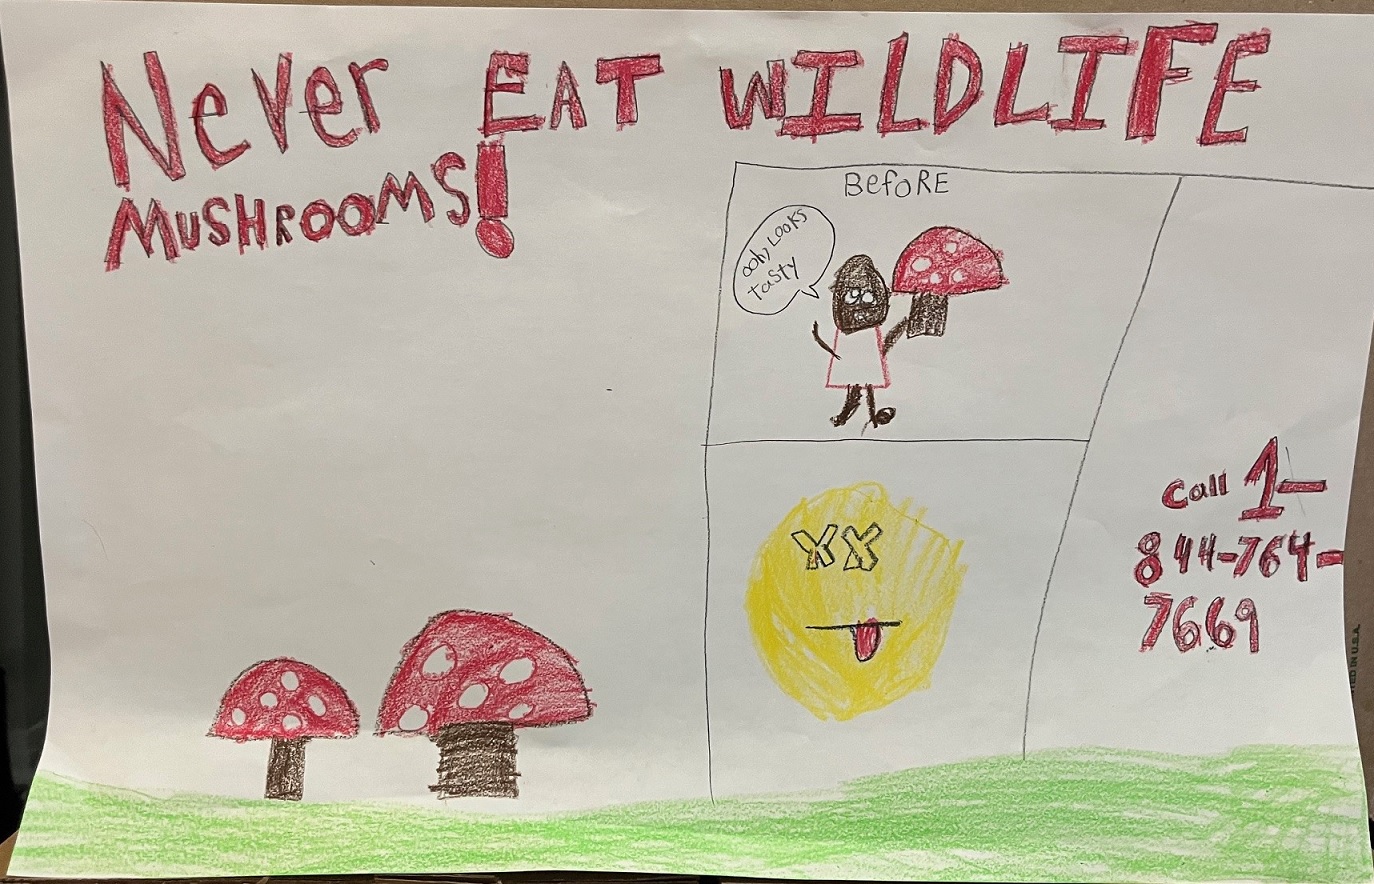 Never EAT WILDLIFE
MUSHROOMS!
BefoRE
ooh, LOOKS
tasty
call 1-
844-764-
7669